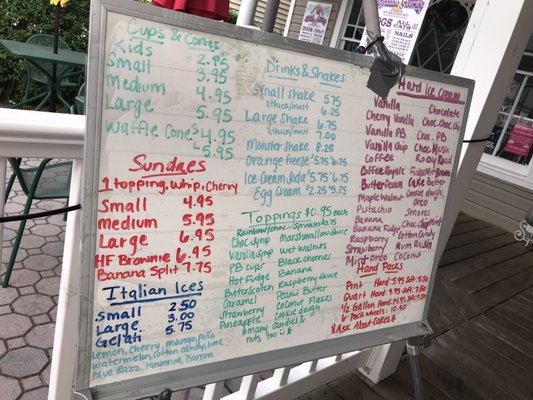 Cups & Cones
Kids 2.95
Small 3.95
medium 4.95
Large 5.95
Waffle Cones 4.95
5.95
Sundaes
1 topping, whip, Cherry
Small 4.95
medium 5.95
Large 6.95
HF Brownie 6.95
Banana Split 7.75
Italian Ices
Small 2.50
Large 3.00
Gelati 5.75
Lemon, Cherry, mango, Piña
watermelon, cotton candy, lime
Blue Razz, tangerine, Banana
Drinks & Shakes
Small shake 5.75
thick/malt 6.25
Large Shake 6.75
thick/malt 7.00
Monster Shake 8.25
Orange freeze 5.75 6.75
Ice Cream Soda 5.75 6.25
Egg Cream 2.25 5.25
Toppings $0.95 each
Rainbow/choc-Sprinkles
Choc syrup Marshmallow Sauce
Vanilla syrup Wet Walnuts
PB cups Black Cherries
Hot Fudge Banana
Butterscotch Raspberry Sauce
Caramel Peanut Butter
Strawberry Coconut Flakes
Pineapple Cookie dough
& many candies &
nuts too
Hard Ice Cream
Vanilla Chocolate
Cherry Vanilla Choc. Chip
Vanilla PB Choc. PB
Vanilla Chip Choc Mousse
Coffee Rocky Road
Coffee Royale Fudge Mint Brownie
Butter Pecan Cake Batter
Maple Walnut Oreo
Pistachio Smores
Banana Choc Chip CD
Banana Fudge Cotton Candy
Raspberry Rum Raisin
Strawberry Coconut
Mint Oreo
Hand Packs
Pint Hard: 5.95 Soft 5.50
Quart Hard: 9.95
1/2 Gallon Hard:
6 pack wheels: 10.50
*Ask About Cakes*